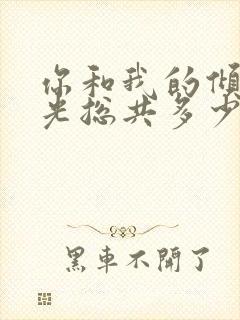 你和我的傾
光總共多少
黑車不開了